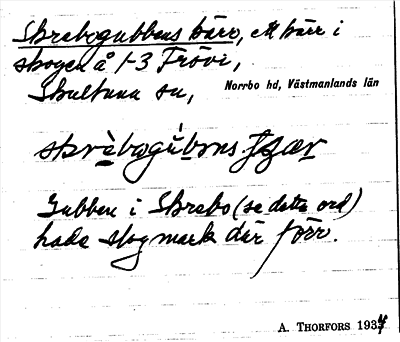 Skrebogubbens kärr, ett kärr i
skogen å 1-3 Frövi,
Skultuna sn,
Norrbo hd, Västmanlands län
skrèbogúbens
Gubben i Skrebo (se detta ord)
hade skogmark där förr.
A. THORFORS 1934